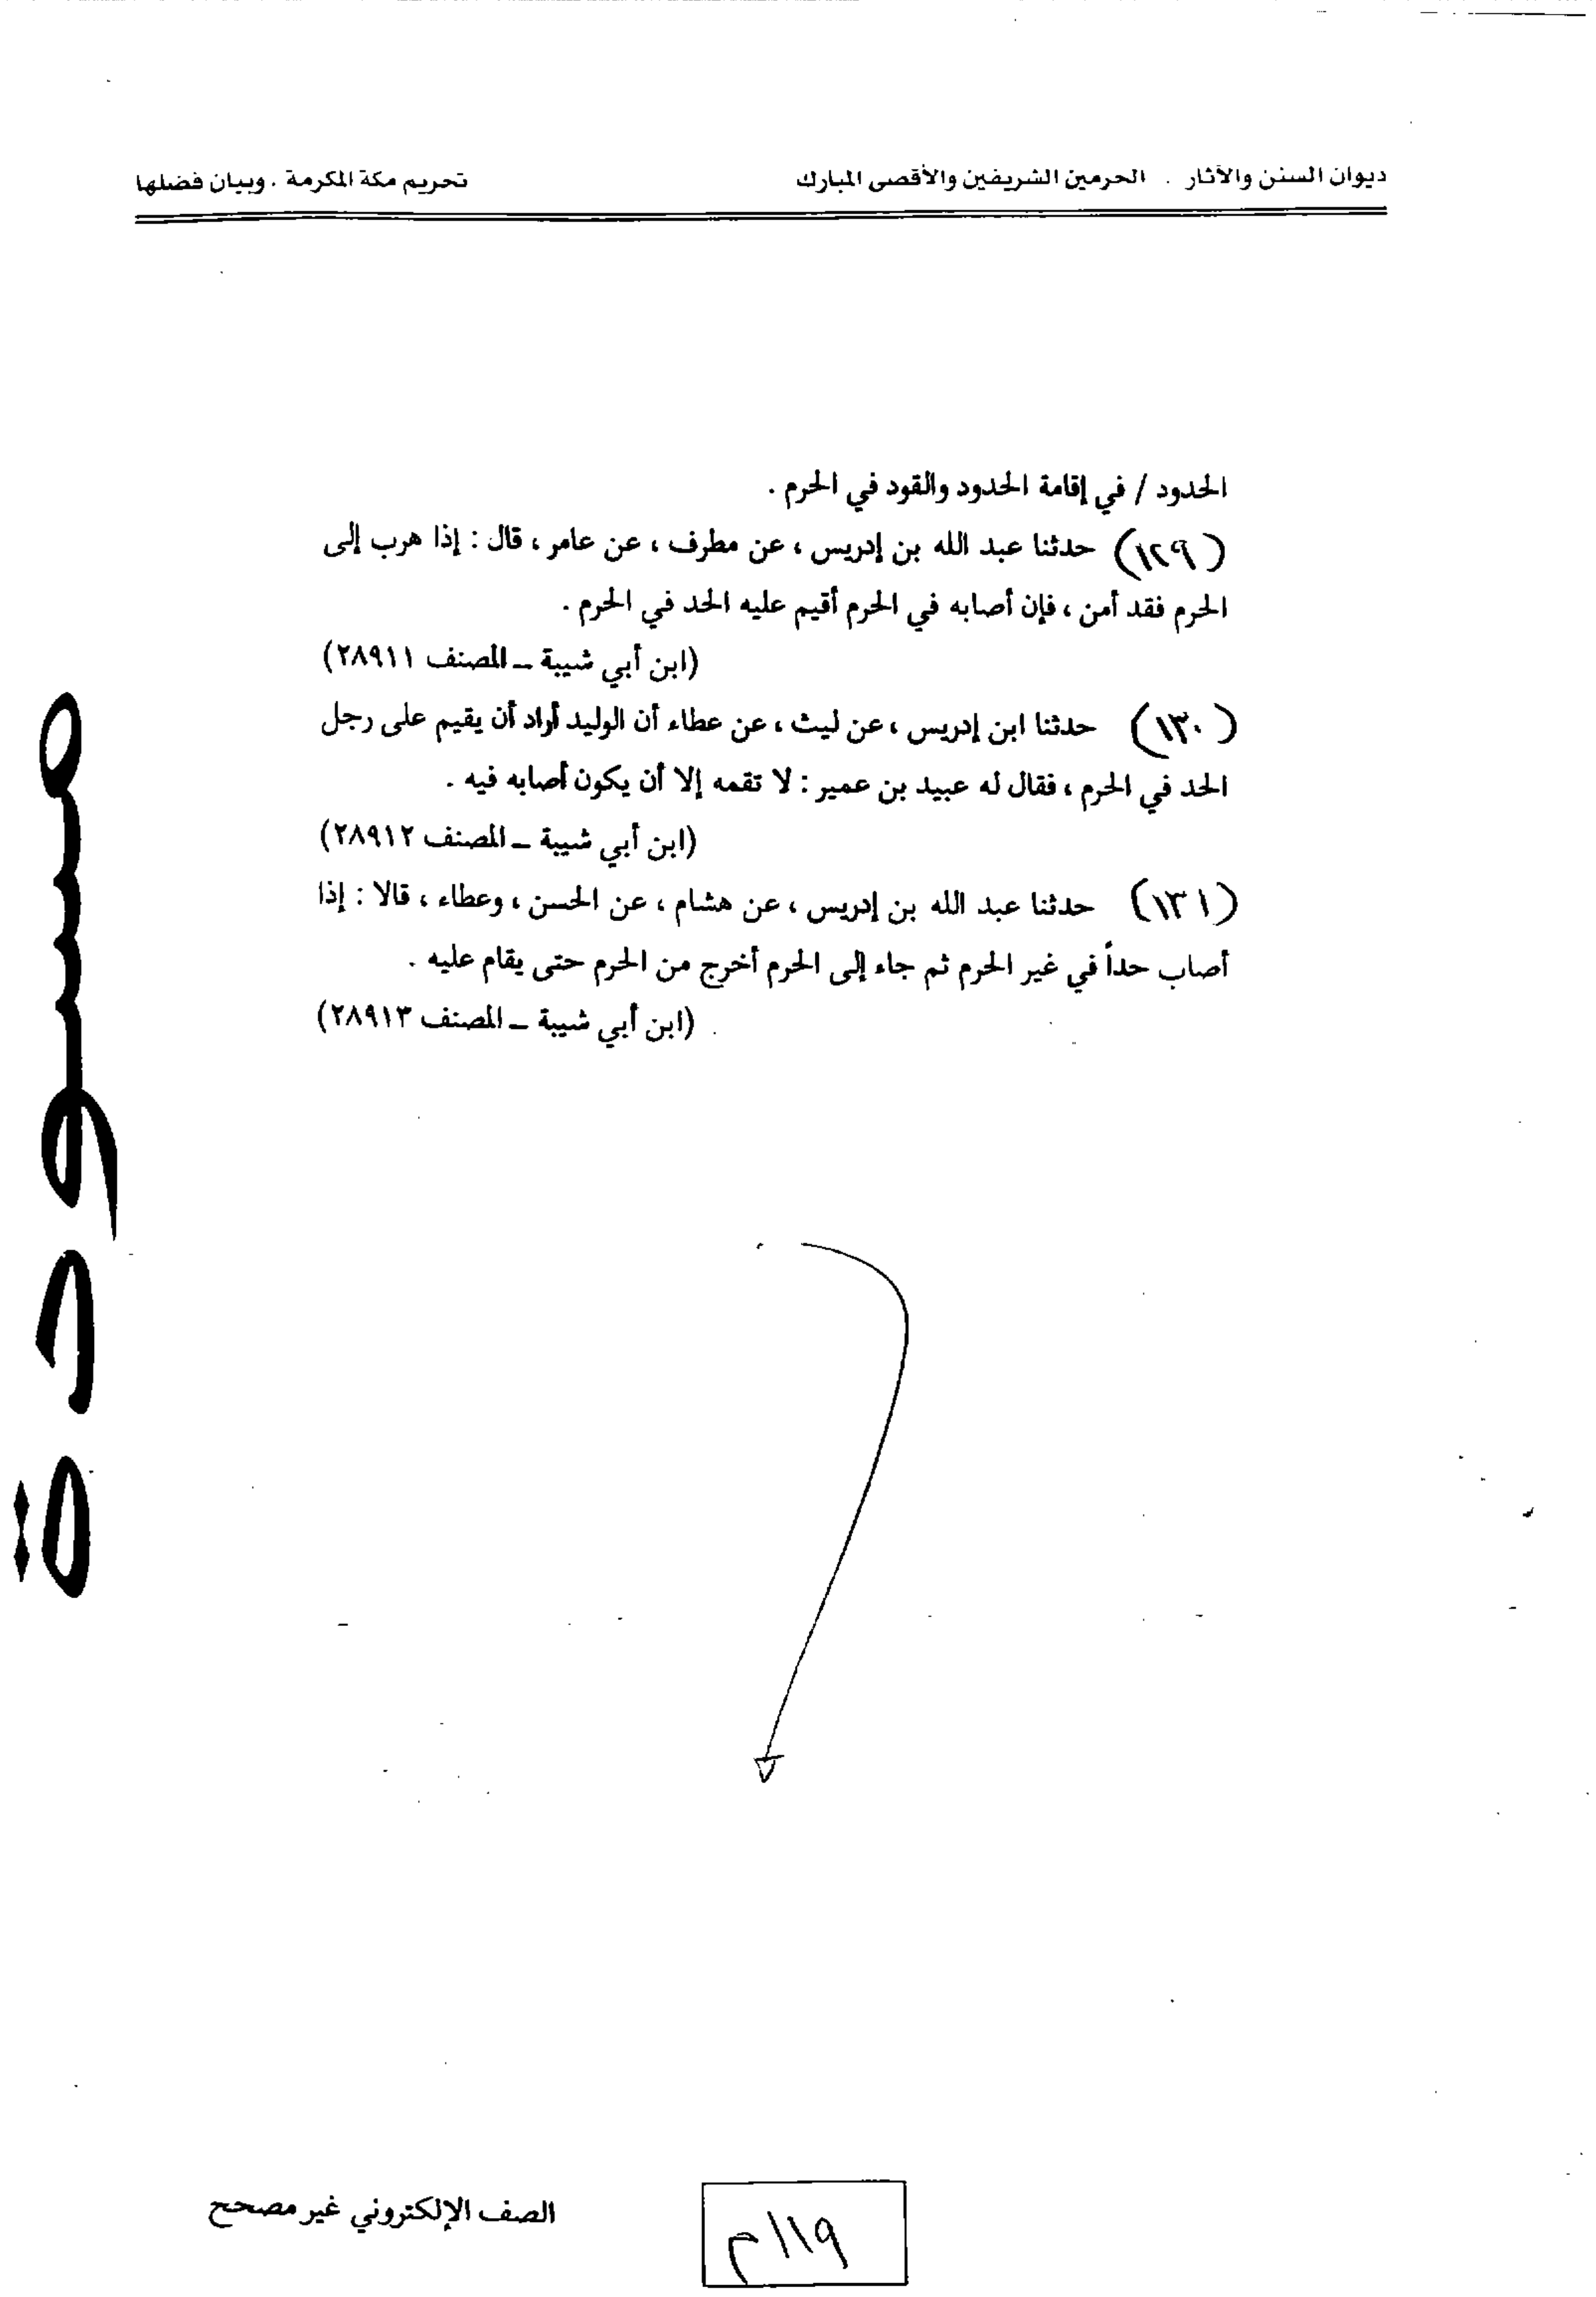 ديوان السنن والآثار . الحرمين الشريفين والأقصى المبارك تحريم مكة المكرمة . وبيان فضلها
الحدود / في إقامة الحدود والقود في الحرم .
(١٢٩) حدثنا عبد الله بن إدريس ، عن مطرف ، عن عامر ، قال : إذا هرب إلى
الحرم فقد أمن ، فإن أصابه في الحرم أقيم عليه الحد في الحرم .
(ابن أبي شيبة – المصنف ٢٨٩١١)
(١٣٠) حدثنا ابن إدريس ، عن ليث ، عن عطاء أن الوليد أراد أن يقيم على رجل
الحد في الحرم ، فقال له عبيد بن عمير : لا تقمه إلا أن يكون أصابه فيه .
(ابن أبي شيبة – المصنف ٢٨٩١٢)
(١٣١) حدثنا عبد الله بن إدريس ، عن هشام ، عن الحسن ، وعطاء ، قالا : إذا
أصاب حداً في غير الحرم ثم جاء إلى الحرم أخرج من الحرم حتى يقام عليه .
(ابن أبي شيبة – المصنف ٢٨٩١٣)
مسودة
١١٩م
الصف الإلكتروني غير مصحح